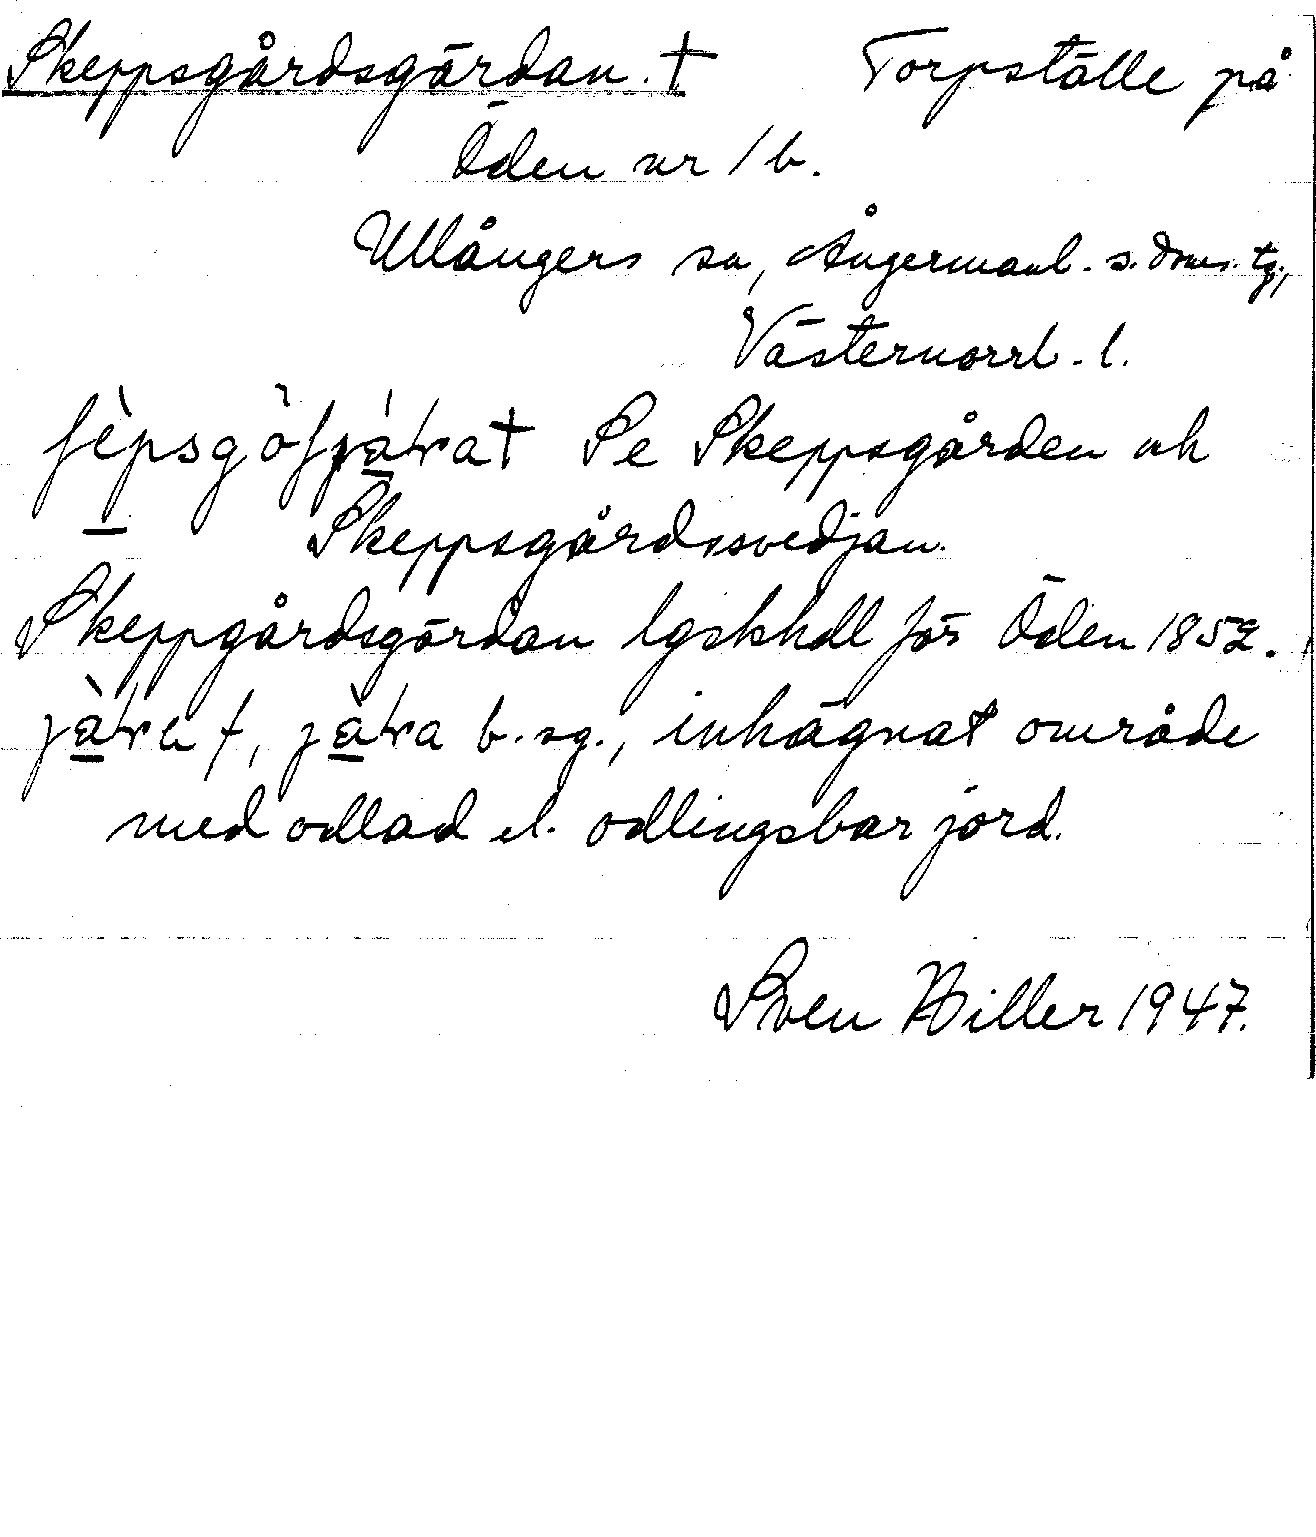 Skeppsgårdsgärdan. † Torpställe på
Öden nr 1 b.
Ullångers sn, Ångermanl. s. doms. tg.,
Västernorrl. l.
Se Skeppsgården och
Skeppsgårdssvedjan.
Skeppgårdsgärdan lgskhdl för Öden 1852.
f, b. sg., inhägnat område
med odlad el. odlingsbar jord.
Sven Hiller 1947.